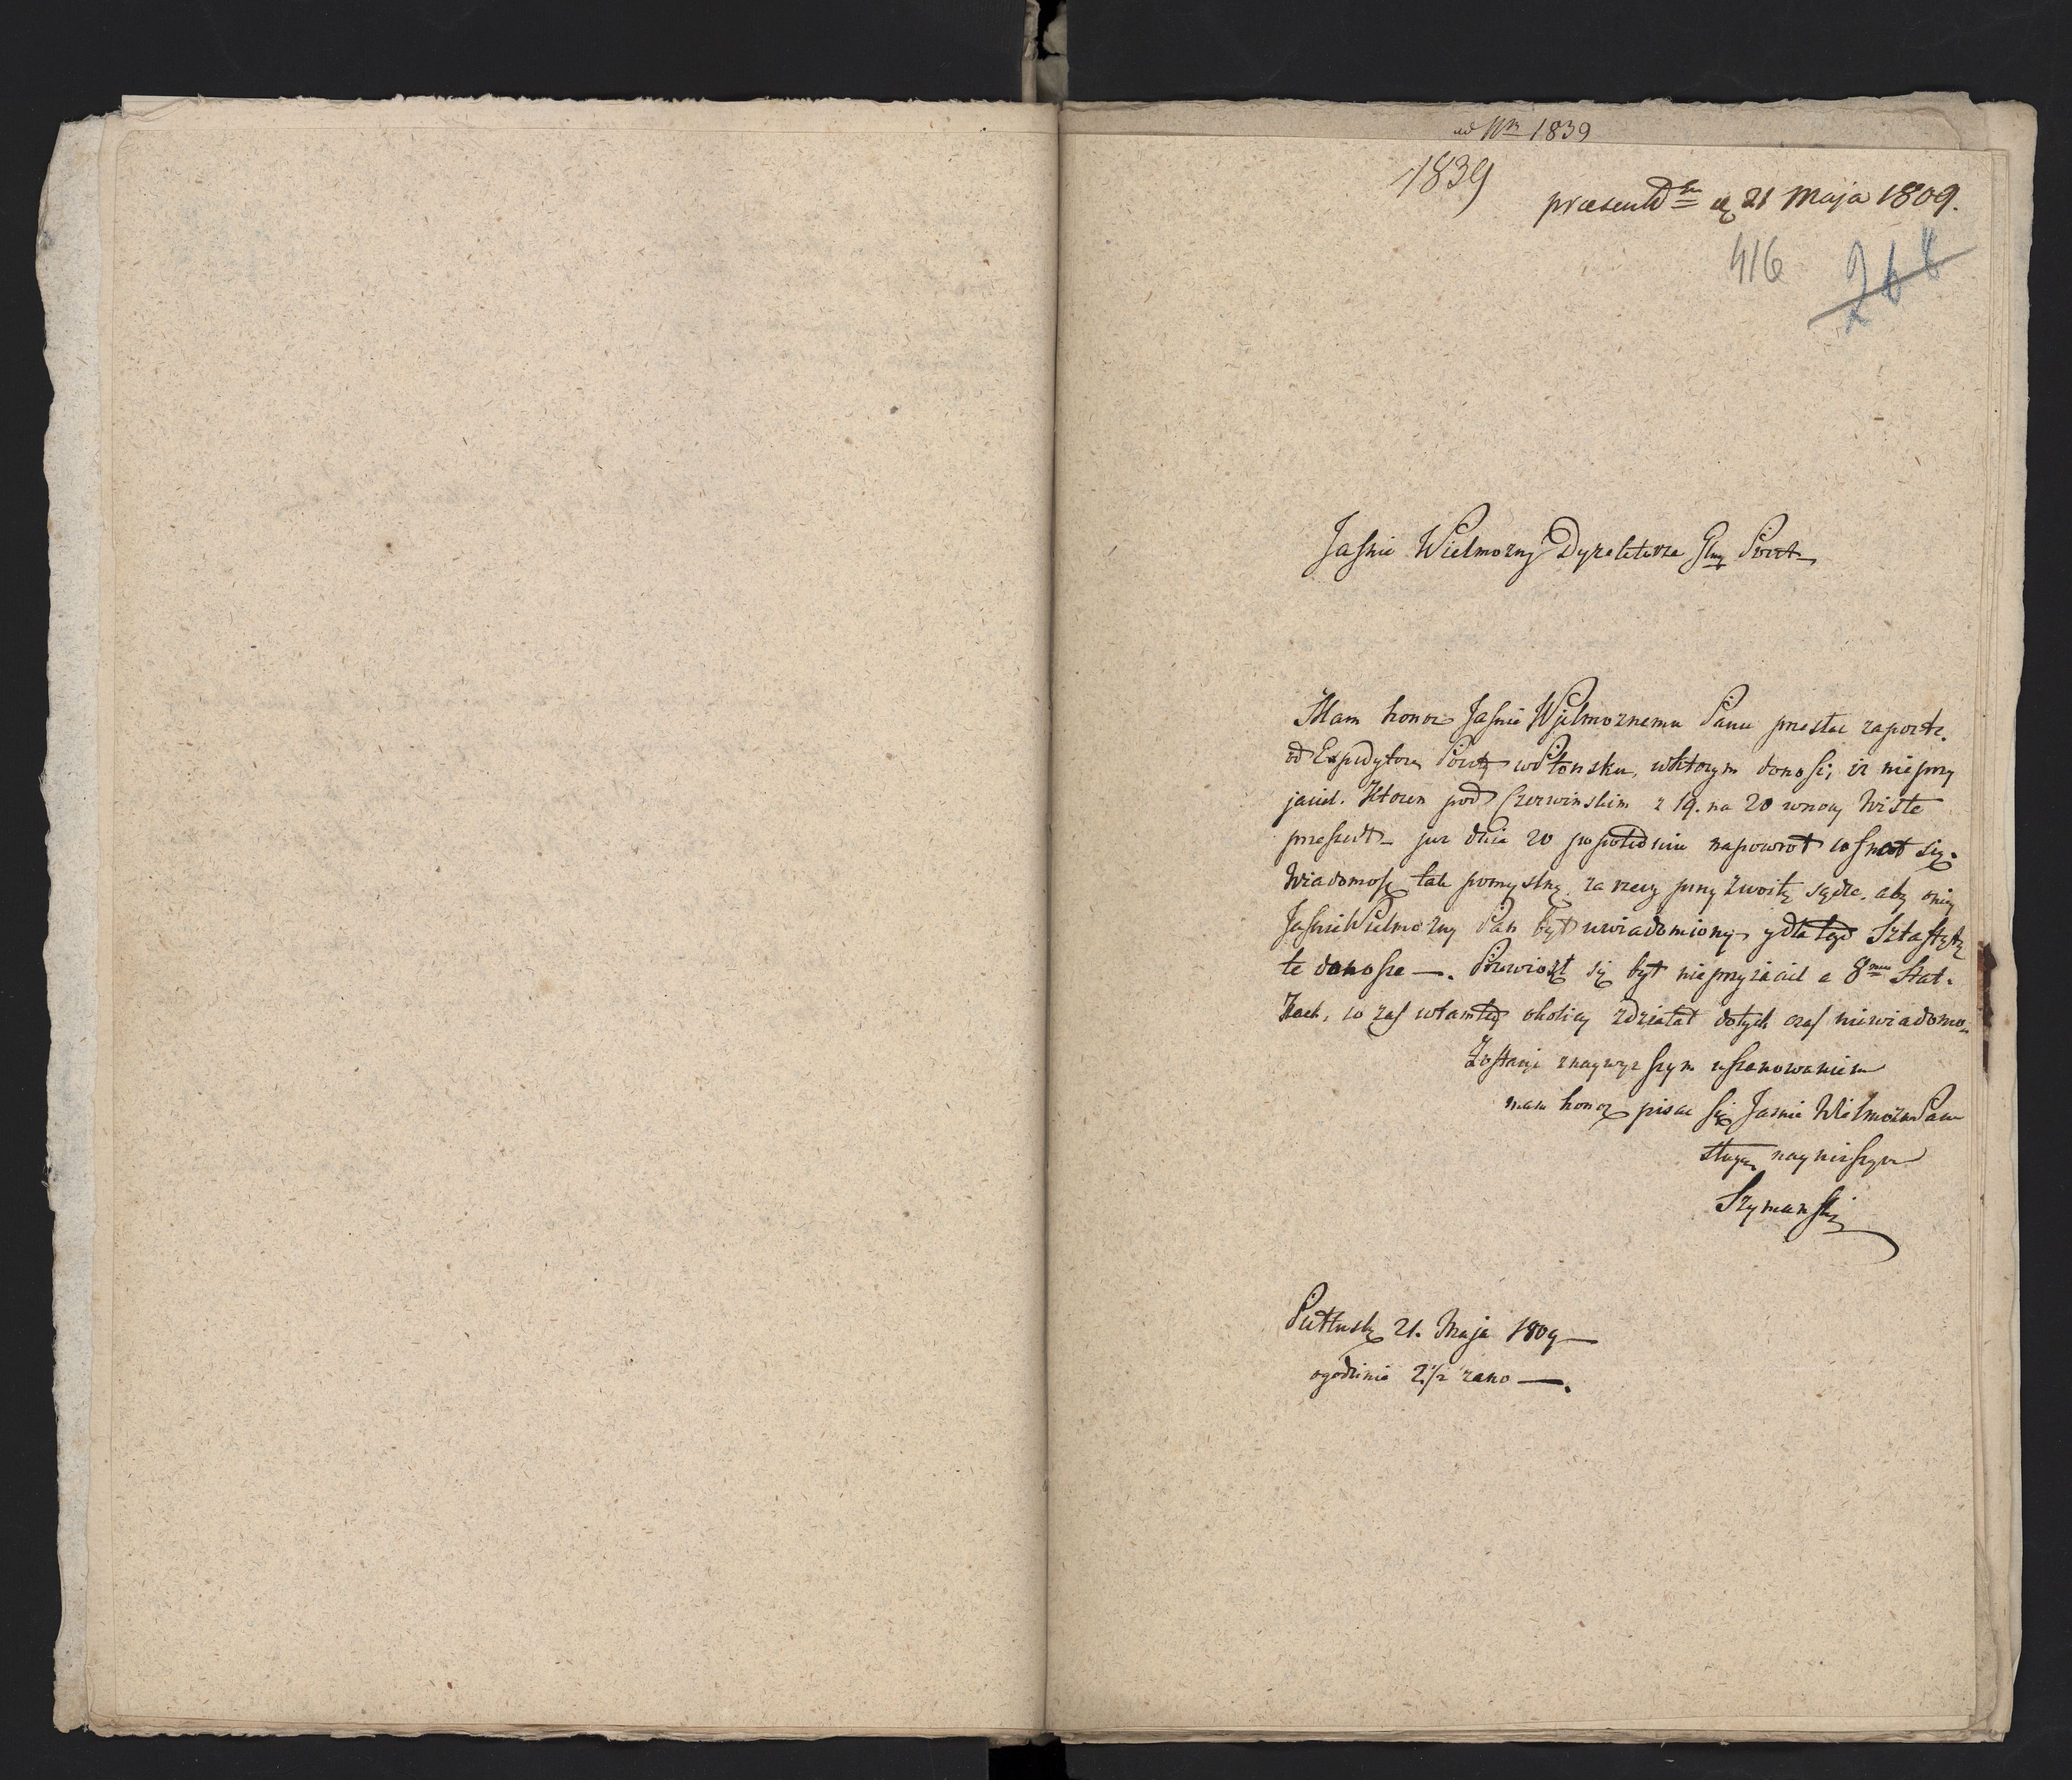 ad Nrm 1839
1839
praesent d 21 Maja 1809.
416
268
Jasnie Wielmozny Dyrektorze Glny Poczt
Mam honor Jasnie Wjelmoznemu Panu przesłac raport
od Expedytora Poczty w Płonsku, wktorym donosi, iz nieprzy
jaciel. Ktoren pod Czerwinskim z 19. na 20 wnocy Wisłe
przeszedł – juz dnia 20 popołudniu napowrot cofnoł się.
Wiadomosc tak pomyslną, za rzecz przyzwoitą sądze, aby onij
JasnieWielmozny Pan był uwiadomiony, y dla tego Sztaffetą
te donosze —. Przewiozł się był nieprzyiaciel a 8miu Stat.
kach, co zas wtamtey okolicy zdziałał dotych czas niewiadomo
Zostaiąc znaywyzszym uszanowaniem
mam honor pisac się Jasnie WielmoznPana
sługą naynizszym
Szymanski
Pułtusk 21. Maja 1809 —
ogodzinie 2 1/2 rano —.